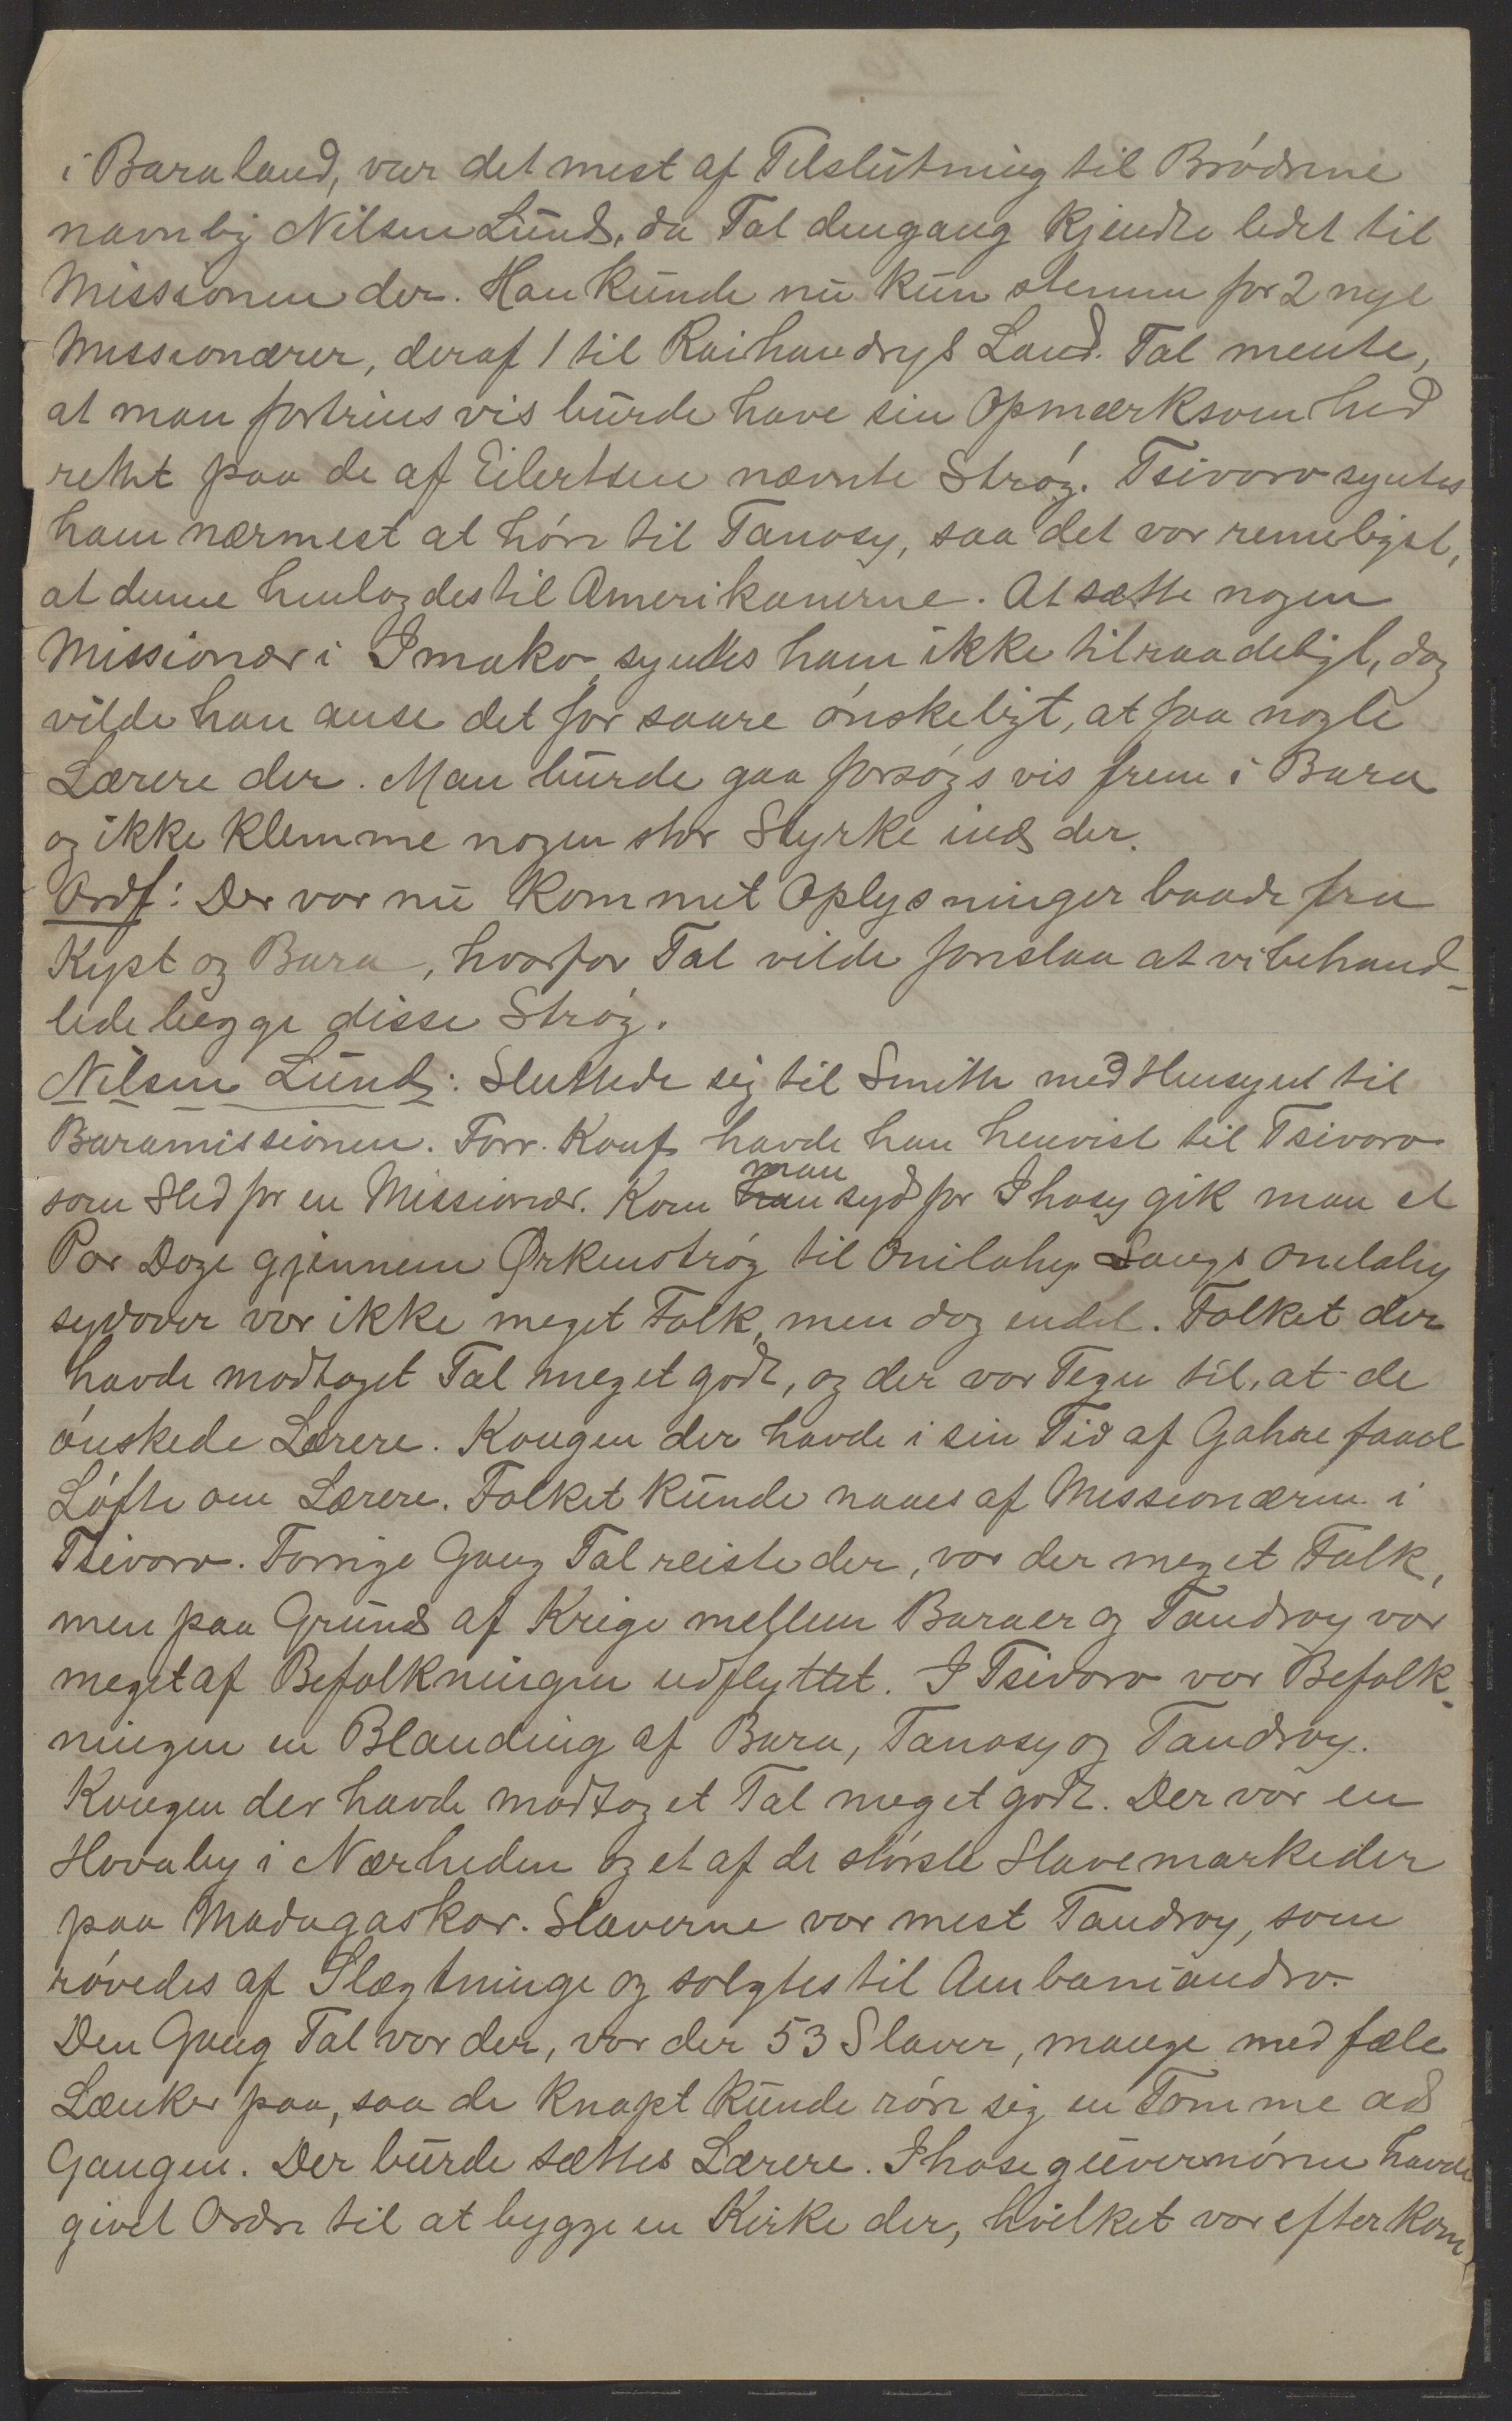 i Baraland, var det mest af Tilslutning til Brødrene
navnlig Nilsen Lund, da Tal dengang kjendte lidet til
Missionen der. Han kunde nu kun stemme for 2 nye
Missionærer, deraf 1 til Raihandrys Land. Tal mente,
at man fortrinsvis burde have sin Opmærksomhed
rettet paa de af Eilertsen nævnte Strøg. Tsivoro syntes
ham nærmest at høre til Tanosy, saa det var rimeligst,
at denne henlagdes til Amerikanerne. At sætte nogen
Missionær i Imako syntes ham ikke tilraadeligt, dog
vilde han anse det for saare ønskeligt, at faa nogle
Lærere der. Man burde gaa forsøgsvis frem i Bara
og ikke klemme nogen stor Styrke ind der.
Ordf: Der var nu kommet Oplysninger baade fra
Kyst og Bara, hvorfor Tal vilde foreslaa at vi behand-
lede begge disse Strøg.
Nilsen Lund: Sluttede sig til Smith med Hensyn til
Baramissionen. Forr. Konf. havde han henvist til Tsivoro
som Sted for en Missionær. Kom man syd for Ihosy gik man et
Par Dage gjennem Ørkenstrøg til Onilahy. Langs Onilahy
sydover var ikke meget Folk, men dog endel. Folket der
havde modtaget Tal meget godt, og der var Tegn til, at de
ønskede Lærere. Kongen der havde i sin Tid af Gahre faaet
Løfte om Lærere. Folket kunde naaes af Missionæren i
Tsivoro. Forrige Gang Tal reiste der, var der meget Folk,
men paa Grund af Krige mellem Baraer og Tandroy var
meget af Befolkningen udflyttet. I Tsivoro var Befolk-
ningen en Blanding af Bara, Tanosy og Tandroy.
Kongen der havde modtaget Tal meget godt. Der var en
Hovaby i Nærheden og et af de største Slavemarkeder
paa Madagaskar. Slaverne var mest Tandroy, som
røvedes af Slægtninge og solgtes til Ambaniandro.
Den Gang Tal var der, var der 53 Slaver, mange med fæle
Lænker paa, saa de knapt kunde røre sig en Tomme ad
Gangen. Der burde sættes Lærere. Ihoseguvernøren havde
givet Ordre til at bygge en Kirke der, hvilket var efterkom